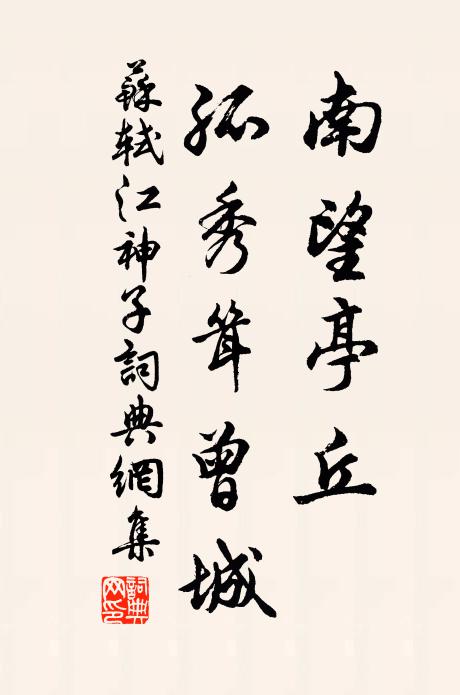 南望亭丘
孤秀聳曾城
蘇軾江神子詞典網集
詞典網印